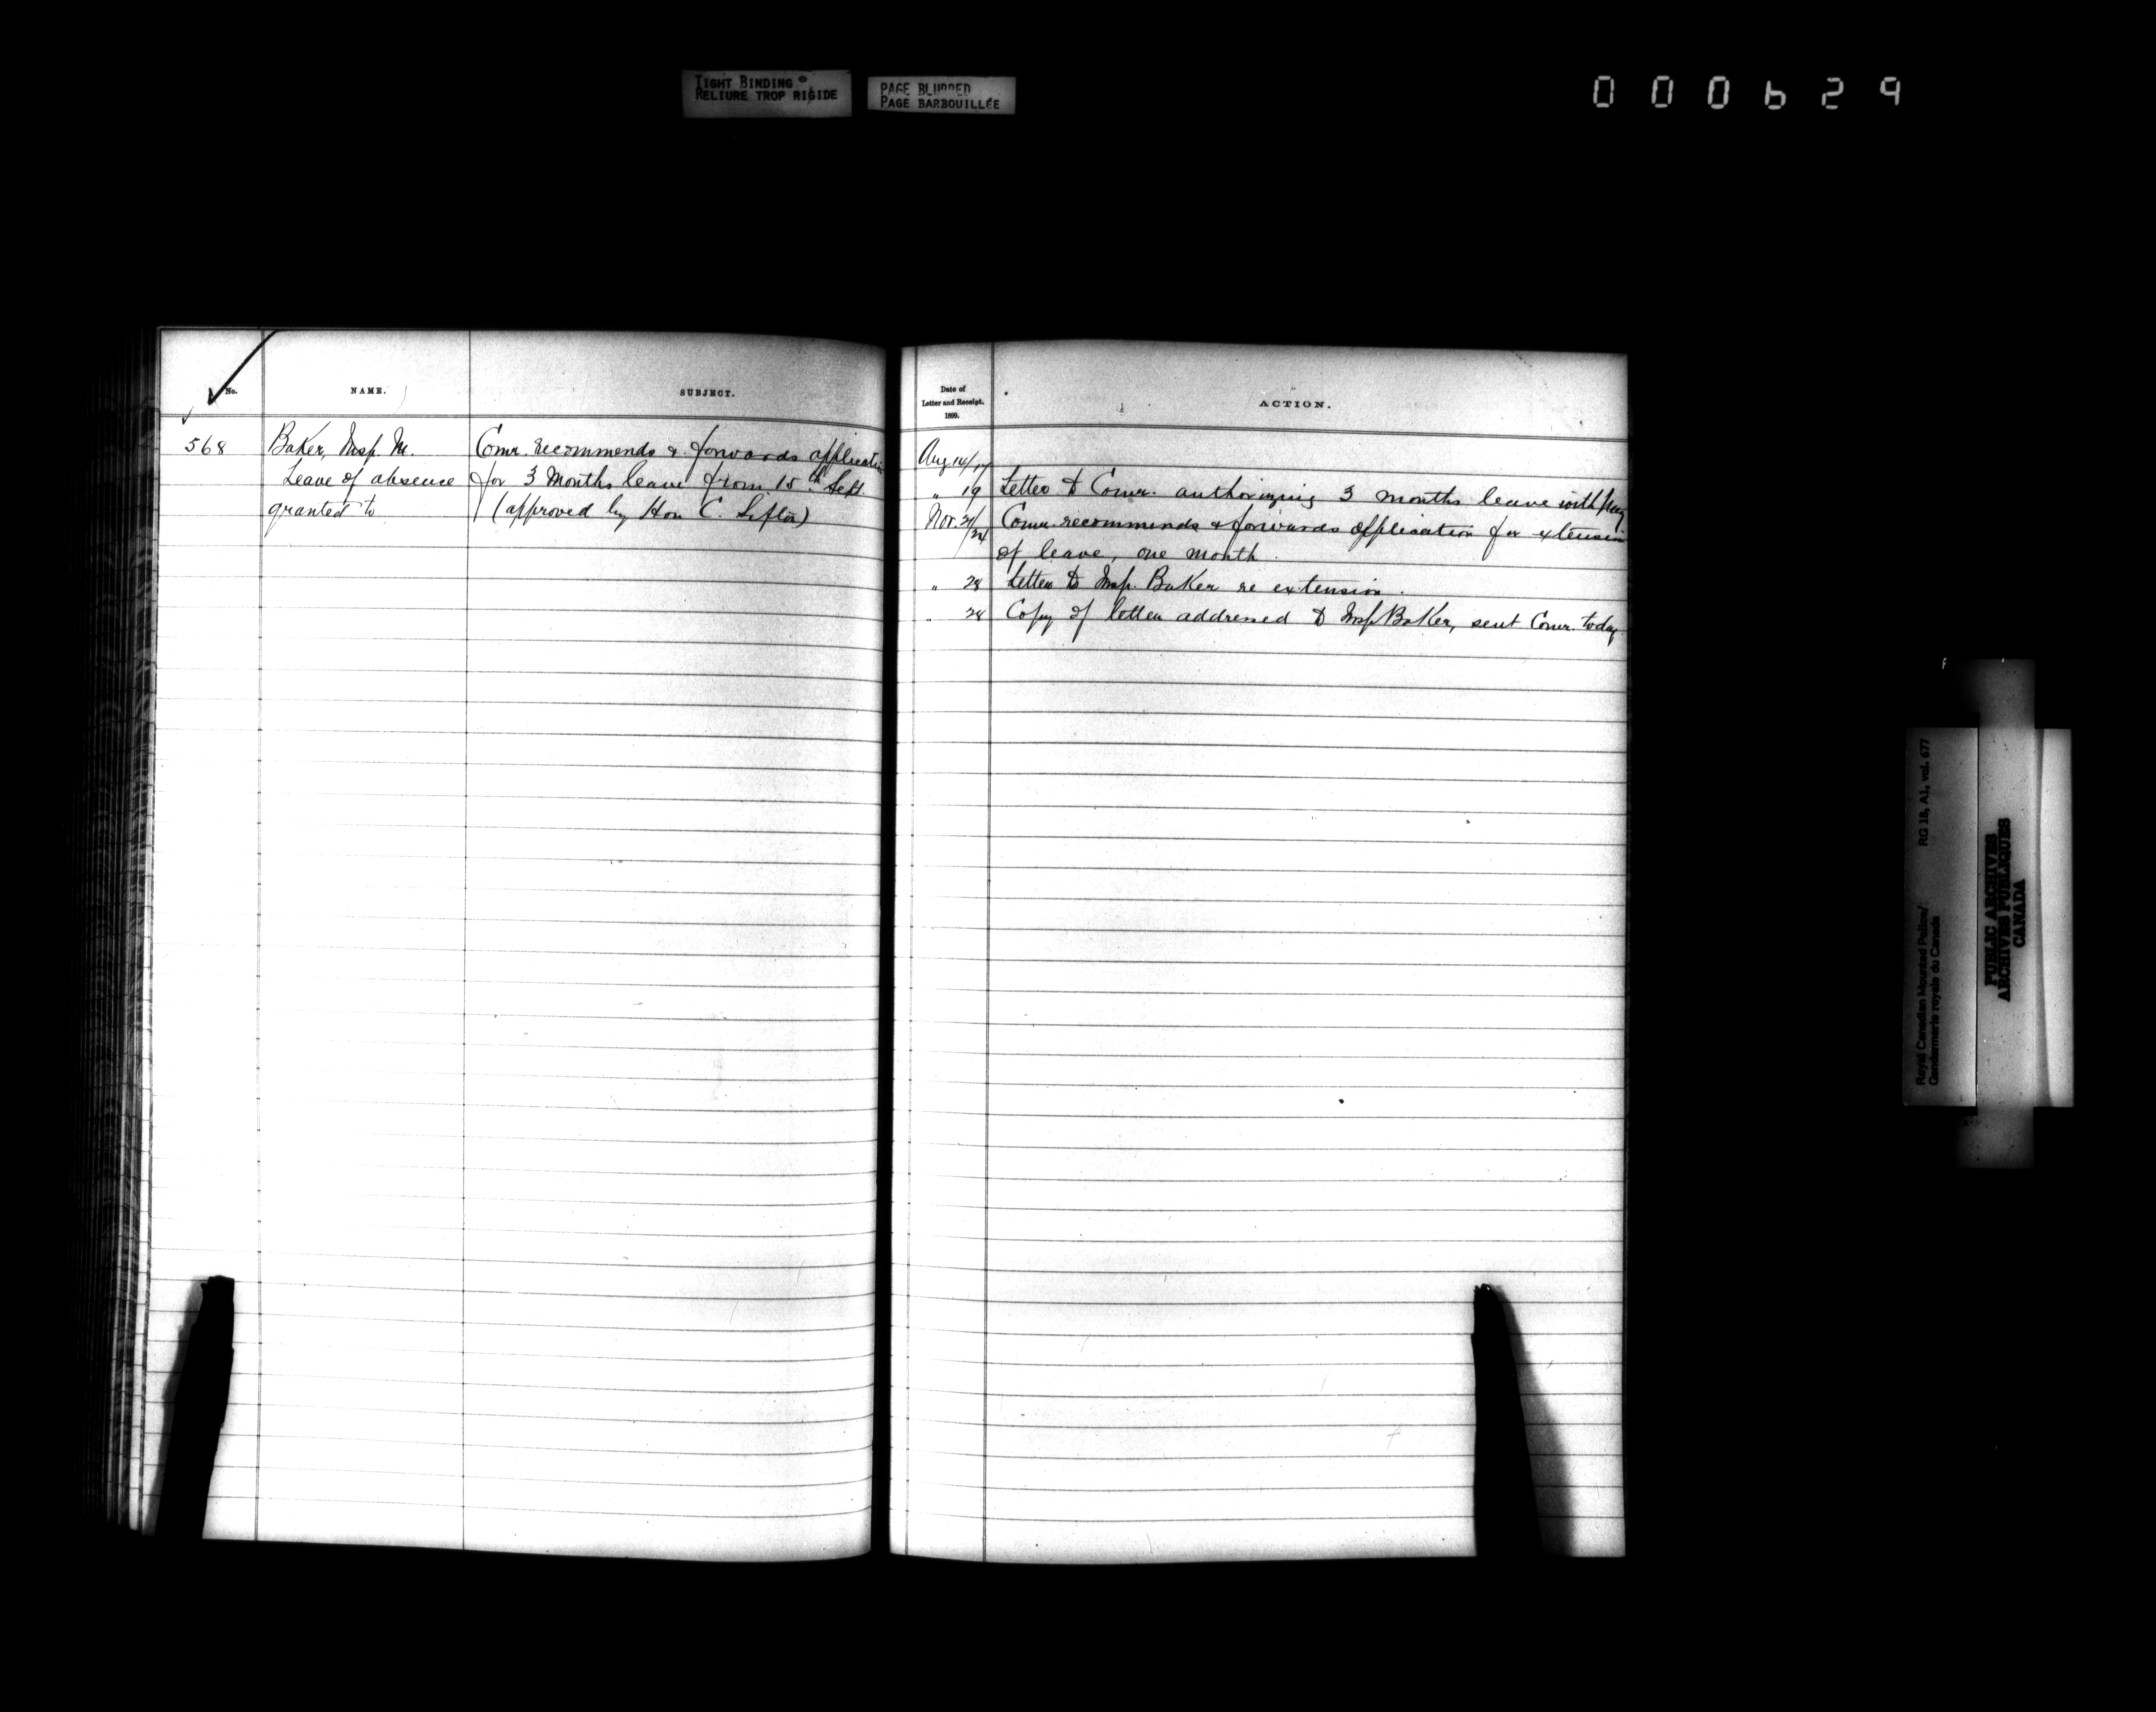 TIGHT BINDING
RELIURE TROP RIGIDE
PAGE BLURRED
PAGE BARBOUILLÉE
000629
No.
NAME.
SUBJECT.
568
Baker, Insp. M.
Leave of absence
granted to
Comr. recommends & forwards application
for 3 Months leave from 15th Sept.
(approved by Hon C. Sifton)
Date of
Letter and Receipt.
1899.
ACTION.
Aug 14/17
" 19 Letter to Comr. authorizing 3 months leave with pay
Nov. 21/24 Comr. recommends & forwards application for extension
of leave, one month.
" 28 Letter to Insp. Baker re extension.
" 28 Copy of letter addressed to Insp Baker, sent Comr. today
Royal Canadian Mounted Police/
Gendarmerie royale du Canada
RG 18, A1, vol. 677
PUBLIC ARCHIVES
ARCHIVES PUBLIQUES
CANADA